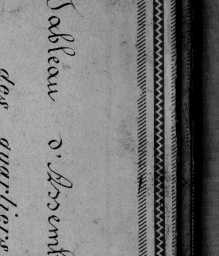 Tableau d'Assem
des quartiers